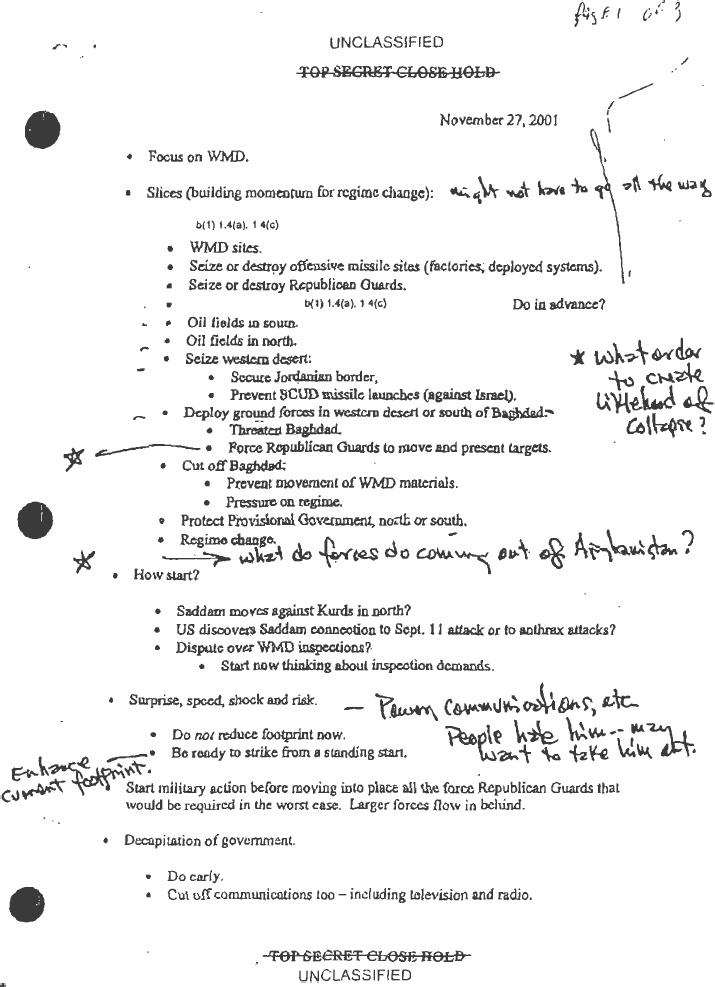 Page 1 of 3
UNCLASSIFIED
TOP SECRET CLOSE HOLD
November 27, 2001
• Focus on WMD.
• Slices (building momentum for regime change): might not have to go all the way
b(1) 1.4(a). 1 4(c)
• WMD sites.
• Seize or destroy offensive missile sites (factories, deployed systems).
• Seize or destroy Republican Guards.
• b(1) 1.4(a). 1 4(c) Do in advance?
• Oil fields in south.
• Oil fields in north.
• Seize western desert:
• Secure Jordanian border,
• Prevent SCUD missile launches (against Israel).
* What order
to create
likelihood of
collapse?
• Deploy ground forces in western desert or south of Baghdad:
• Threaten Baghdad.
• Force Republican Guards to move and present targets.
• Cut off Baghdad:
• Prevent movement of WMD materials.
• Pressure on regime.
• Protect Provisional Government, north or south.
• Regime change.
what do forces do coming out of Afghanistan?
• How start?
• Saddam moves against Kurds in north?
• US discovers Saddam connection to Sept. 11 attack or to anthrax attacks?
• Dispute over WMD inspections?
• Start now thinking about inspection demands.
• Surprise, speed, shock and risk. — Power, communications, etc
• Do not reduce footprint now.
• Be ready to strike from a standing start.
People hate him -- may
want to take him out.
Enhance
current footprint.
Start military action before moving into place all the force Republican Guards that
would be required in the worst case. Larger forces flow in behind.
• Decapitation of government.
• Do early.
• Cut off communications too – including television and radio.
TOP SECRET CLOSE HOLD
UNCLASSIFIED